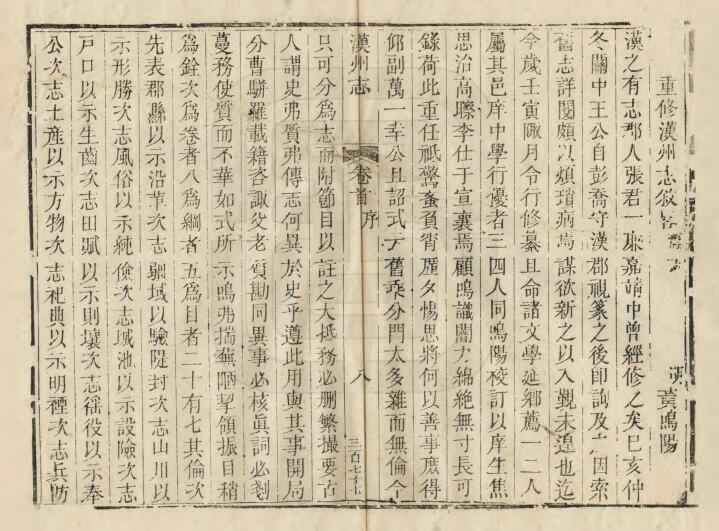 重修漢州志敘畧 明 鳴陽
漢之有志郡人張君一嘉靖中曾經修之矣巳亥仲
冬關中王公自彭喬守漢郡視篆之後即詢及之因索
舊志詳閱頗以煩璿病焉謀欲新之以入覲未遑也迄
今歲壬寅陬月令行修纂且命諸文學延鄉薦一二人
屬其邑庠中學行優者三四人同鳴陽稜訂以庠生焦
思治高騰李仕于宣襄焉顧鳴讖闇力綿絶無寸長可
錄荷此重任祗驚蚉負夕惕思將何以善事庶得
仰副萬一幸公且詔式于舊乘分門太多雜而無倫今
漢州志
卷首 序
八
三百七十七
只可分爲志而附節目以註之大抵務必刪繁撮要古
人謂史弗質弗傳志何異於史乎遵此用與其事開局
分曹駢羅載籍咨諏父老質勘同異事必核眞詞必剗
蔓務使質而不華如式所示鳴弗揣蕪陋挈領振目稍
爲銓次爲卷者八爲綱者五爲目者二十有七其倫次
先表郡縣以示沿革次志疆域以驗隄封次志山川以
示形勝次志風俗以示純儉次志城池以示設險次志
戸口以示生齒次志田賦以示則壤次志徭役以示奉
公次志土産以示方物次志祀典以示明禋次志兵防